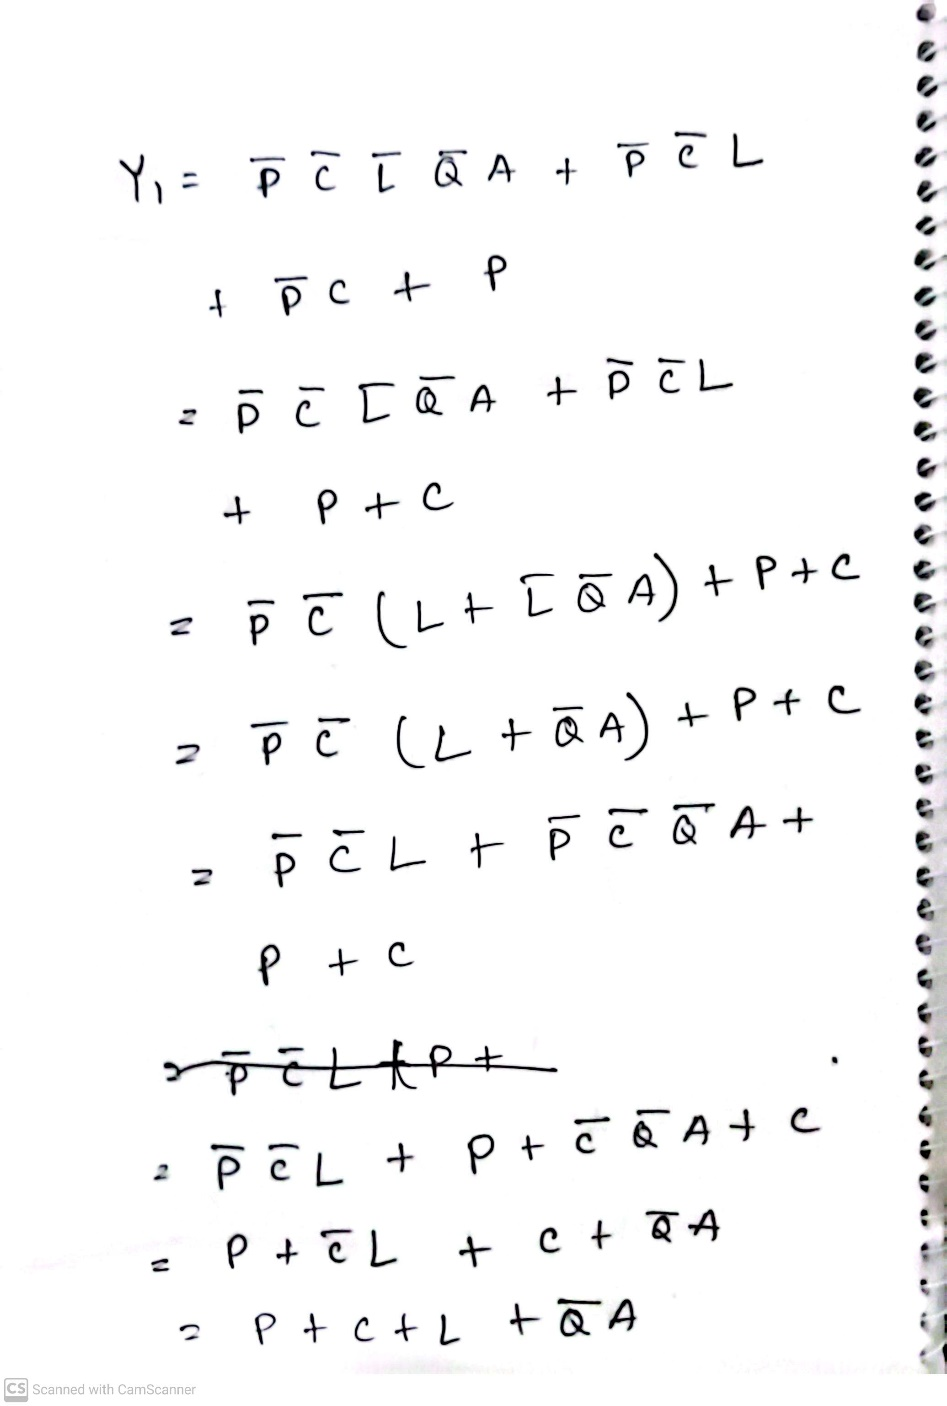 Y₁ = P̅ C̅ L̅ Q̅ A + P̅ C̅ L
+ P̅ C + P
= P̅ C̅ L̅ Q̅ A + P̅ C̅ L
+ P + C
= P̅ C̅ (L + L̅ Q̅ A) + P + C
= P̅ C̅ (L + Q̅ A) + P + C
= P̅ C̅ L + P̅ C̅ Q̅ A +
P + C
= P̅ C̅ L + P +
= P̅ C̅ L + P + C̅ Q̅ A + C
= P + C̅ L + C + Q̅ A
= P + C + L + Q̅ A
CS Scanned with CamScanner